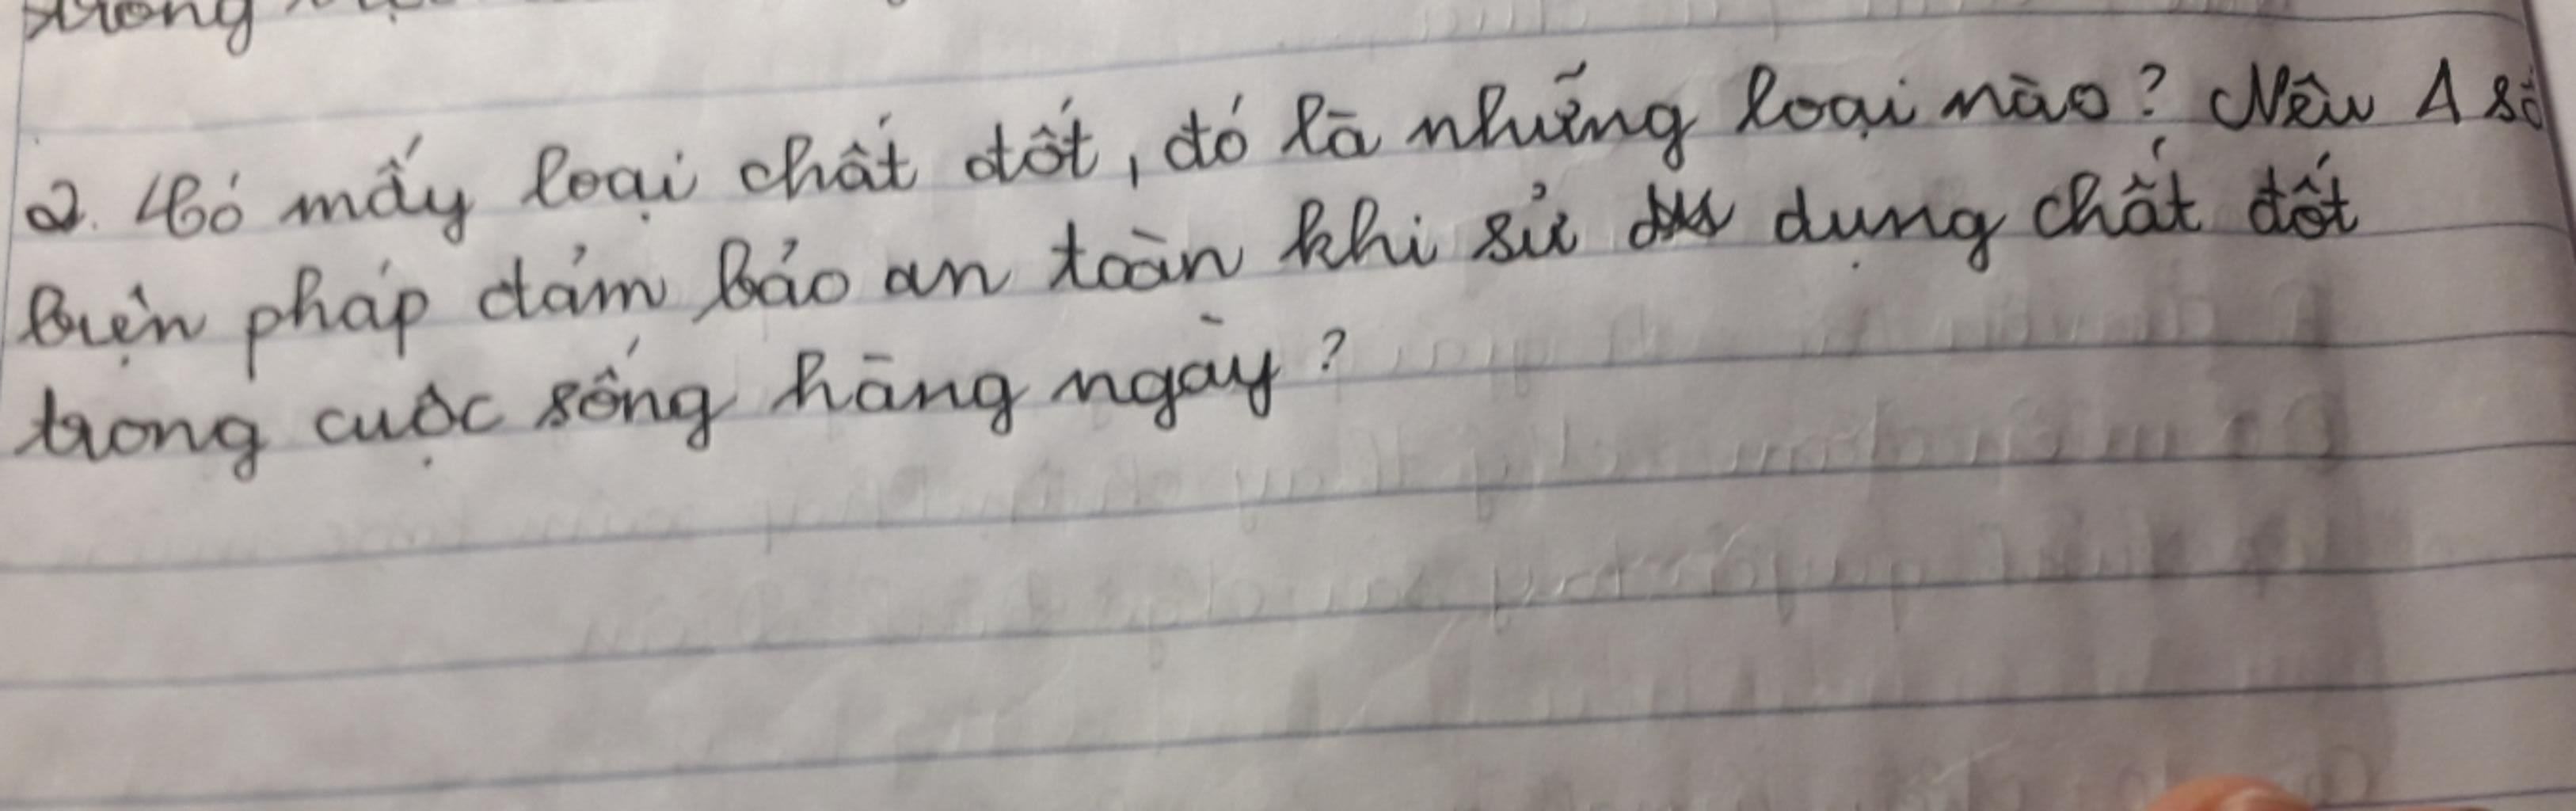 trong
2. Có mấy loại chất đốt, đó là những loại nào? Nêu 1 số
biện pháp đảm bảo an toàn khi sử dụng chất đốt
trong cuộc sống hàng ngày?